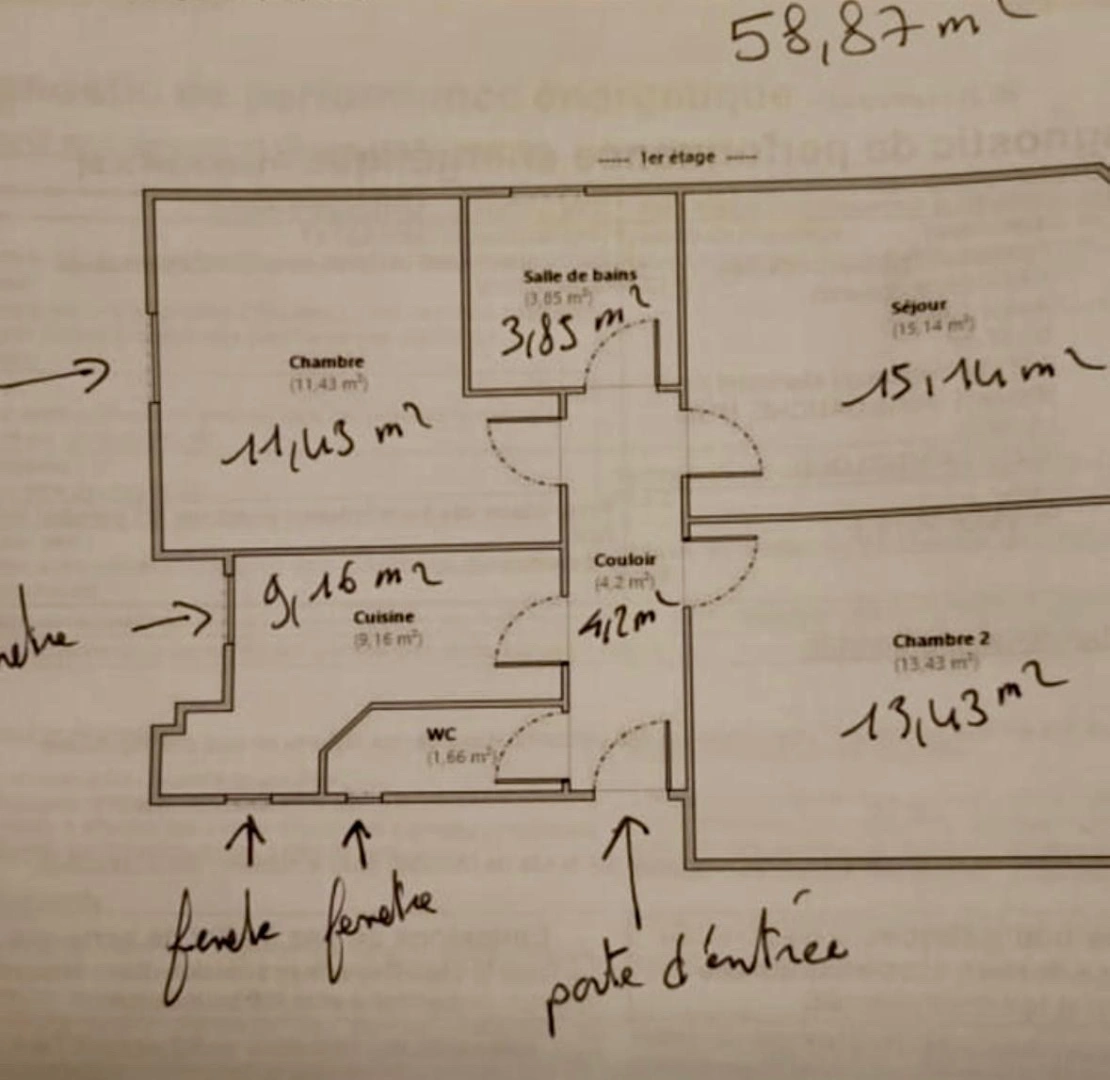 58,87 m²
---- 1er étage ----
Salle de bains
(3,85 m²)
3,85 m²
Séjour
(15,14 m²)
15,14 m²
Chambre
(11,43 m²)
11,43 m²
Couloir
(4,2 m²)
4,2 m²
9,16 m²
Cuisine
(9,16 m²)
Chambre 2
(13,43 m²)
13,43 m²
WC
(1,66 m²)
fenetre fenetre
porte d'éntrée